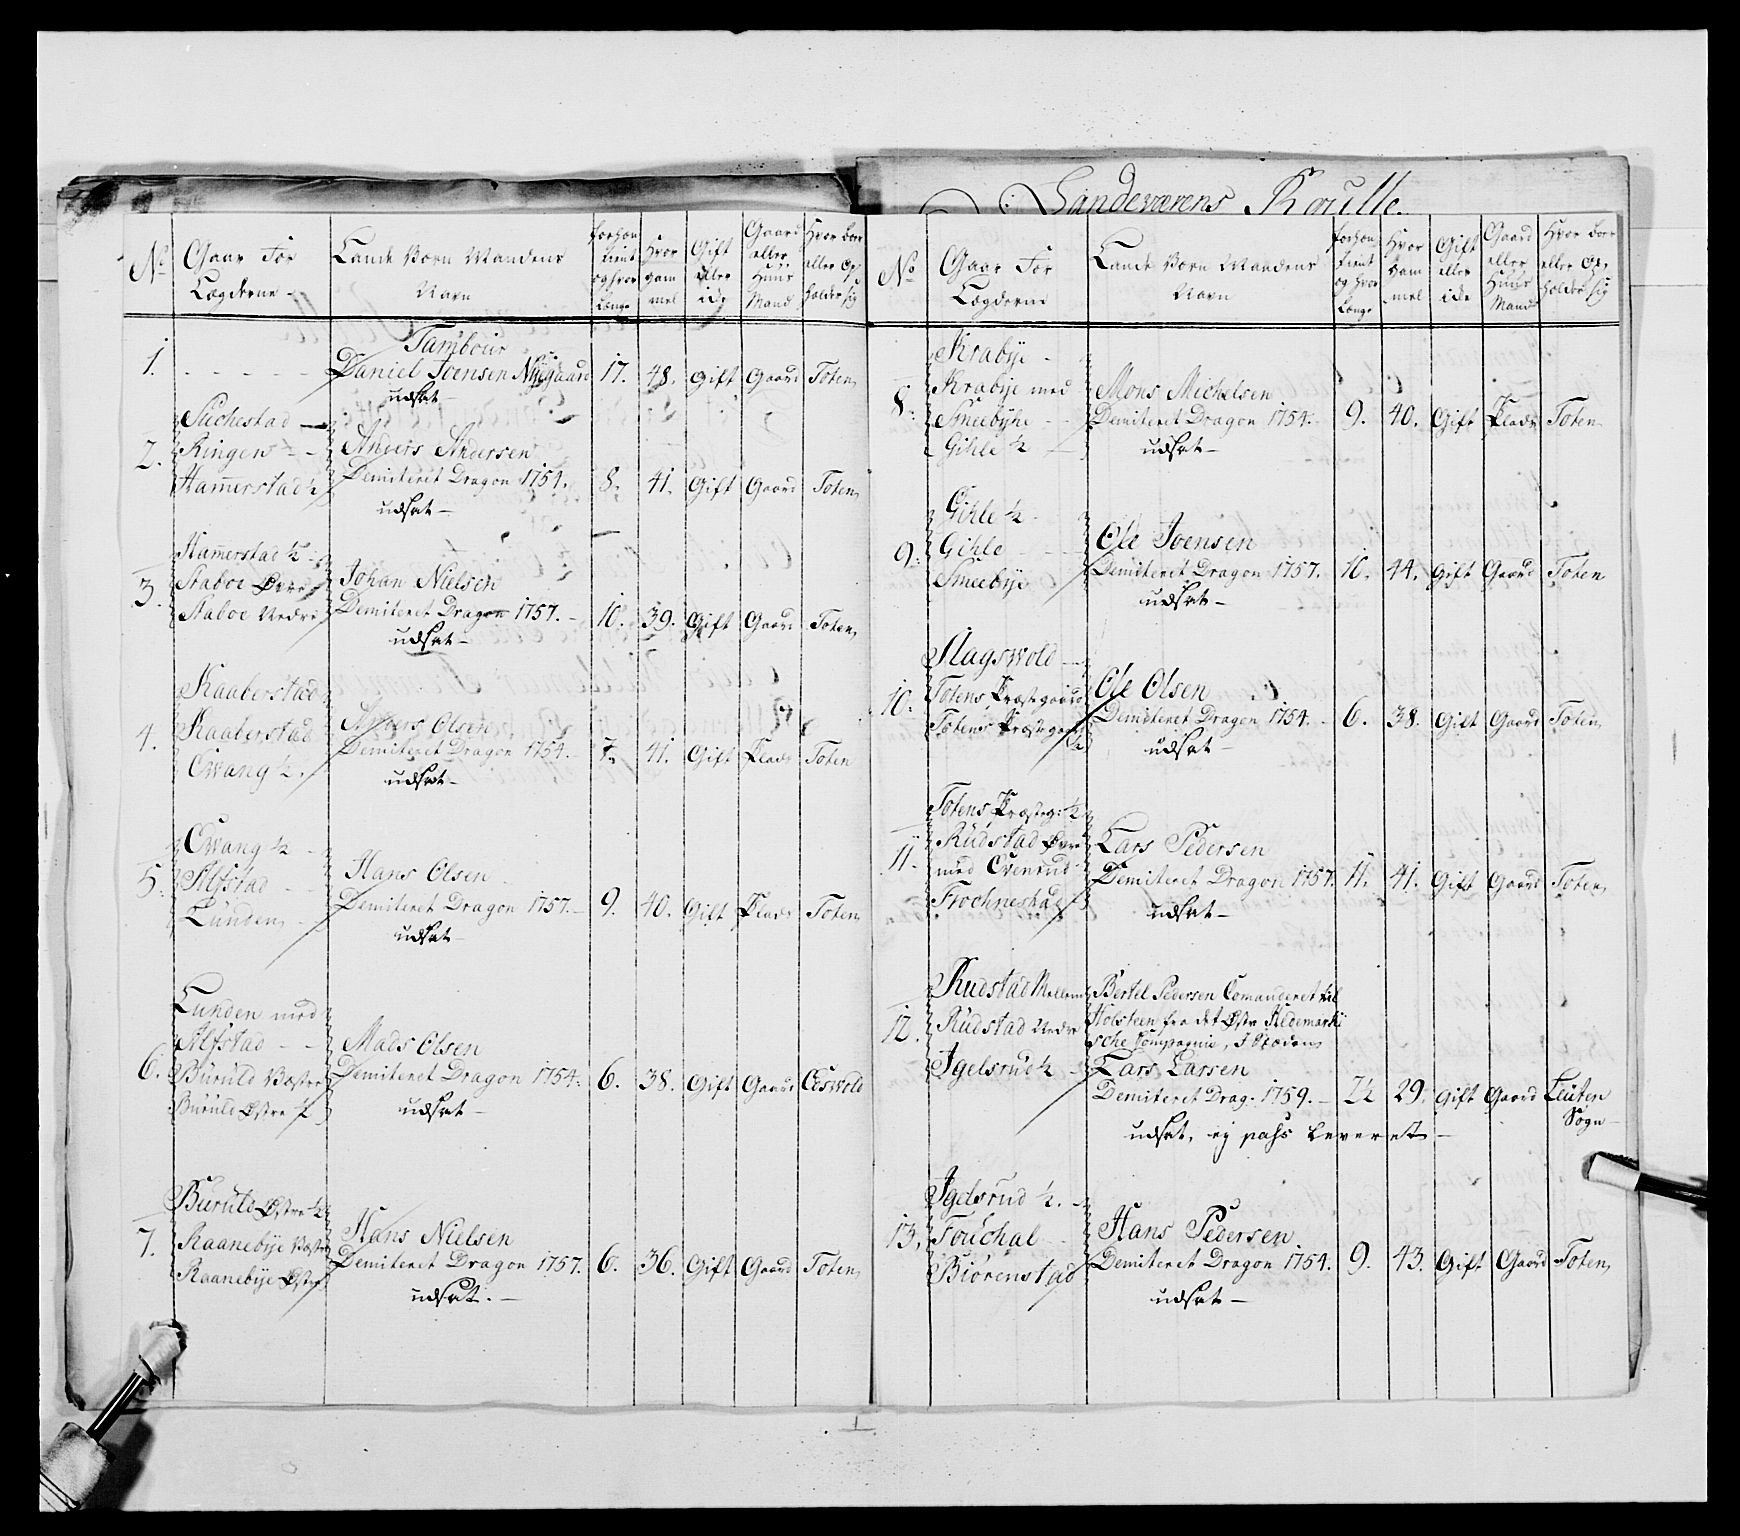 Landeværens Roulle.
No
Gaar For
Lægderne
Lande Værn Mandens
Navn
forhen
tient
og hvor
Længe
Hvor
gam
mel
Gift
eller
ide
Gaard
eller
Huus
Mand
Hvor boer
eller op,
holder sig
1.
Tambour
Daniel Joensen Nÿegaard
udsat
17. 48. Gift Gaard Toten
2.
Suchestad
Ringen
Hammerstad ½
Anders Andersen
Demiteret Dragon 1754.
udsat
8. 41. Gift Gaard Toten
3.
Hammerstad ½
Staboe Øvre
Staboe Nedre
Johan Nielsen
Demiteret Dragon 1757.
udsat
10. 39. Gift Gaard Toten
4.
Kaaberstad
Kaaberstad
Qvang ½.
Anders Olsen
Demiteret Dragon 1754.
udsat
7. 41. Gift Plads Toten
5.
Qvang ½
Alfstad
Lunden
Hans Olsen
Demiteret Dragon 1757.
udsat
9. 40. Gift Plads Toten
6.
Lunden med
Alfstad
Buruld Væstre
Buruld Østre ½
Mads Olsen
Demiteret Dragon 1754.
udsat
6. 38. Gift Gaard Eeswold
7.
Buruld Østre ½
Raanebye Væstre
Raanebye Østre
Hans Nielsen
Demiteret Dragon 1757.
udsat.
6. 36. Gift Gaard Toten
No
Gaar For
Lægderne
Lande Værn Mandens
Navn
forhen
tient
og hvor
Længe
Hvor
gam
mel
Gift
eller
ide
Gaard
eller
Huus
Mand
Hvor boer
eller op,
holder sig
8.
Krabye
Krabye med
Smeebye
Gihle ½
Mons Michelsen
Demiteret Dragon 1754.
udsat
9. 40. Gift Plads Toten
9.
Gihle ½
Gihle
Smeebye
Ole Joensen
Demiteret Dragon 1757.
udsat
10. 44. Gift Gaard Toten
10.
Hagswold
Totens Præstgaard
Totens Præstegaard ½
Ole Olsen
Demiteret Dragon 1754.
udsat
6. 38. Gift Gaard Toten
11.
Totens Præsteg: ½
Rudstad Øvre
med Evenrud
Frochnestad
Lars Pedersen
Demiteret Dragon 1757.
udsat
11. 41. Gift Gaard Toten
12.
Rudstad Mellem
Rudstad Nedre
Igelsrud ½
Bertel Pedersen Comanderet til
Holsteen fra det Østre Hedemarki
sche Compagnie, I Stæden
Lars Larsen
Demiteret Drag. 1759.
udsat, ej pahs leveret
2½ 29. Gift Gaard Leuten
Sogn
13.
Igelsrud ½.
Fouchal
Biørenstad
Hans Pedersen
Demiteret Dragon 1754.
udsat
9. 43. Gift Gaard Toten